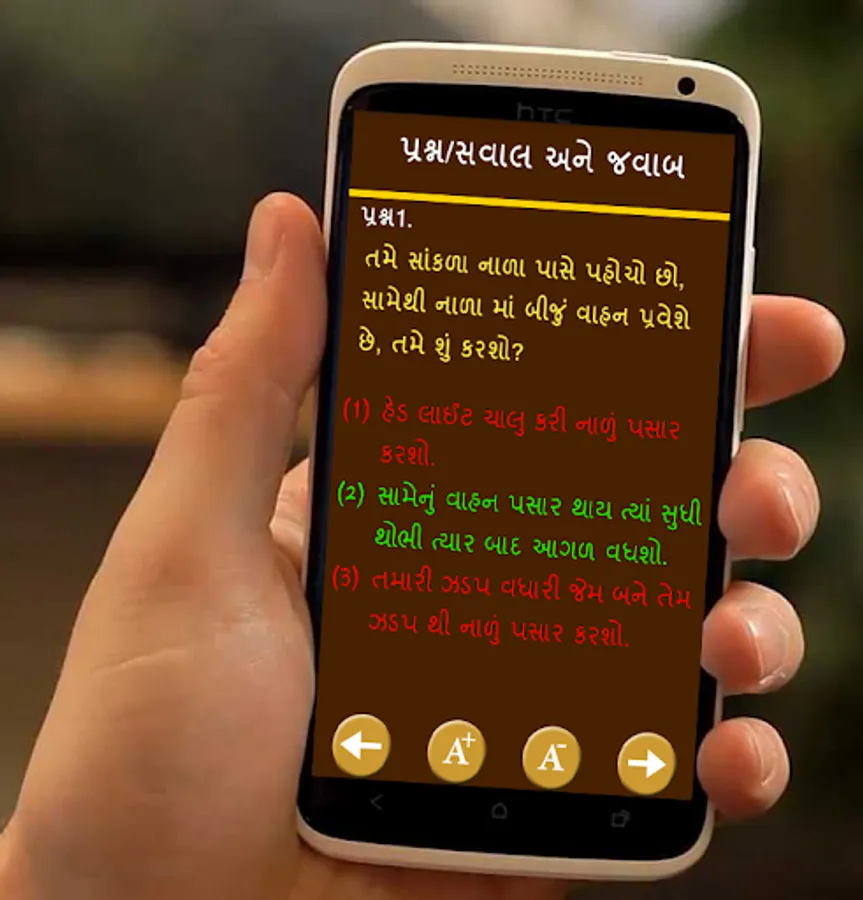 hTC
પ્રશ્ન/સવાલ અને જવાબ
પ્રશ્ન1.
તમે સાંકળા નાળા પાસે પહોચો છો,
સામેથી નાળા માં બીજું વાહન પ્રવેશે
છે, તમે શું કરશો?
(1) હેડ લાઈટ ચાલુ કરી નાળું પસાર
કરશો.
(2) સામેનું વાહન પસાર થાય ત્યાં સુધી
થોભી ત્યાર બાદ આગળ વધશો.
(3) તમારી ઝડપ વધારી જેમ બને તેમ
ઝડપ થી નાળું પસાર કરશો.
A+ A-